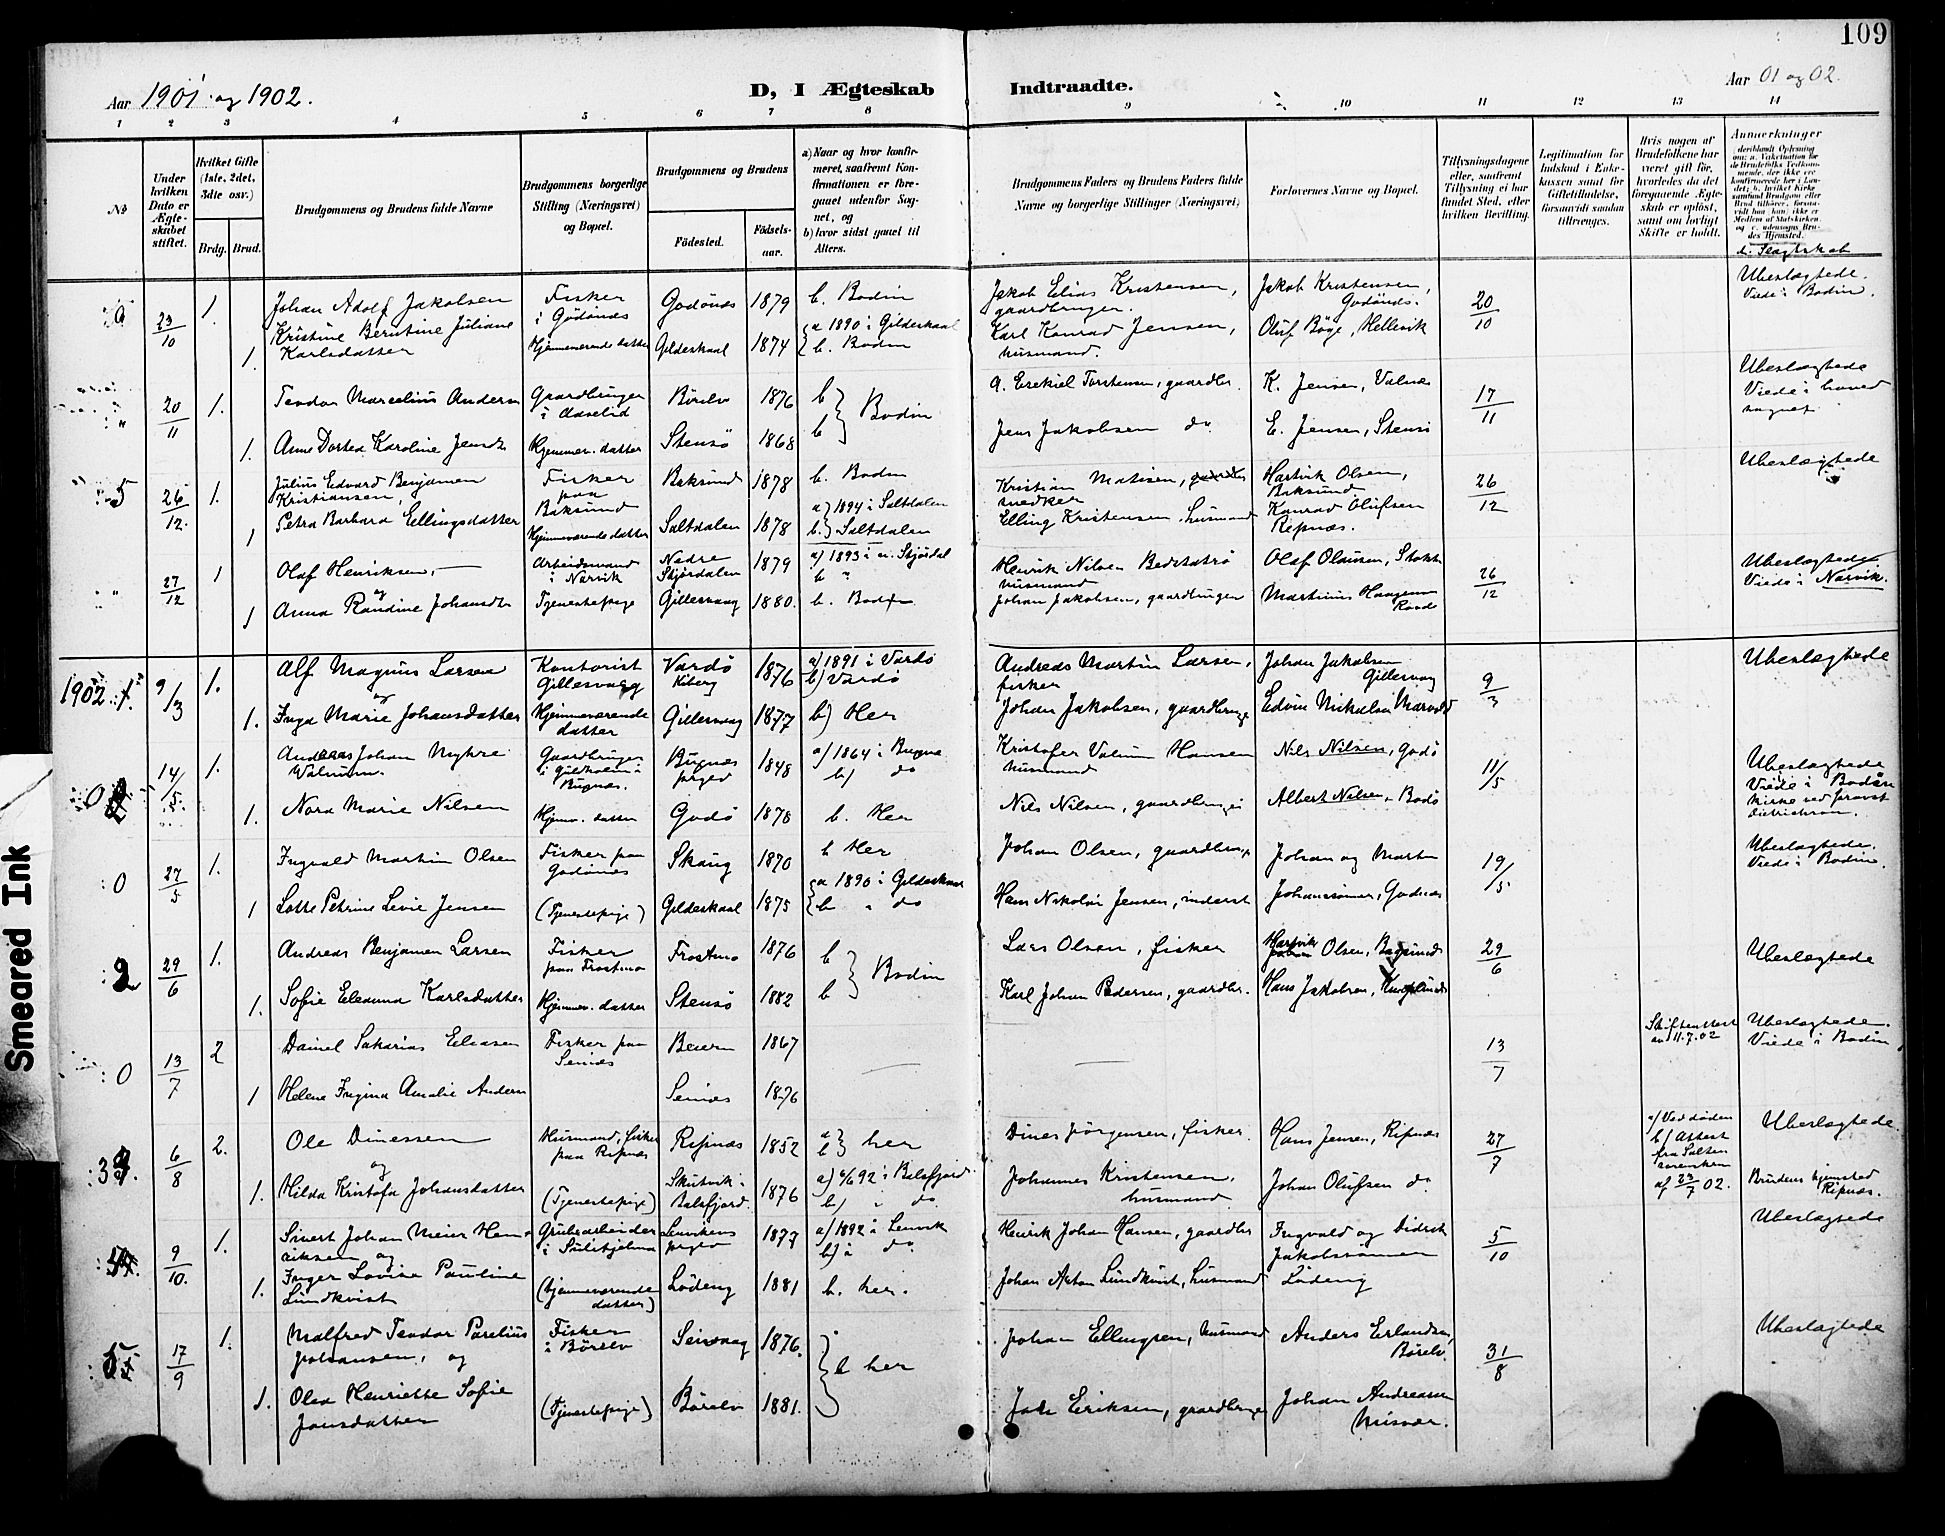 109
Aar 1901 og 1902.
D, I Ægteskab
Indtraadte.
Aar 01 og 02.
1 2 3 4 5 6 7 8 9 10 11 12 13 14
№
Under hvilken Dato er Ægteskabet stiftet.
Hvilket Gifte (1ste, 2det, 3die osv.)
Brdg. Brud.
Brudgommens og Brudens fulde Navne
Brudgommens borgerlige Stilling (Næringsvei) og Bopæl.
Brudgommens og Brudens
Födested.
Födselsaar.
a) Naar og hvor konfirmeret, saafremt Konfirmationen er foregaaet udenfor Sognet, og
b) hvor sidst gaaet til Alters.
Brudgommens Faders og Brudens Faders fulde Navne og borgerlige Stillinger (Næringsvei)
Forlovernes Navne og Bopæl.
Tillysningsdagene eller, saafremt Tillysning ei har fundet Sted, efter hvilken Bevilling.
Legitimation for Indskud i Enkekassen samt for Giftetilladelse, forsaavidt saadan tiltrænges.
Hvis nogen af Brudefolkene har været gift för, hvorledes da det foregaaende Ægteskab er oplöst, samt om lovligt Skifte er holdt.
Anmærkninger (deriblandt Oplysning om: a. Vakcination for de Brudefolks Vedkommende, der ikke ere konfirmerede her i Landet; b. hvilket Kirkesamfund Brudgom eller Brud tilhörer, forsaavidt han (hun) ikke er Medlem af Statskirken, og c. udensogns Brudes Hjemsted.
d. Slægtskab
23/10 1. Johan Adolf Jakobsen Fisker i Godönes Godönes 1879 b. Bodin Jakob Elias Kristensen, gaardbruger. Jakob Kristensen, Godönes. 20/10 Ubeslægtede. Viede i Bodin.
1. Kristine Berntine Juliane Karlsdatter Hjemmeværende datter Gildeskaal 1874 a 1890 i Gildeskaal b. Bodin Karl Konrad Jensen, husmand. Oluf Böge, Hellevik
20/11 1. Teodor Marcelius Anders Gaardbruger i Aaselid Börelv 1876 b Bodin A. Ezekiel Torstensen, gaardbr. K. Jensen, Valnes 17/11 Ubeslægtede Viede i hovedsognet
1. Anne Dortea Karoline Jensdt Hjemmev. datter Stensö 1868 b Jens Jakobsen do. E. Jensen, Stensö
5 26/12. 1. Julius Edvard Benjamen Kristiansen, Fisker paa Baksund Baksund 1878 b. Bodin Kristian Matisen, snedker Hartvik Olsen, Baksund 26/12 Ubeslægtede
1 Petra Barbara Ellingsdatter Hjemmeværende datter Saltdalen 1878 a) 1894 i Saltdalen b.) Saltdalen Elling Kristensen, husmand Konrad Olufsen Ripnæs.
" 27/12 1 Olaf Henriksen, og Arbeidsmand i Narvik Nedre Stjördalen 1879 a) 1893 i n. Stjördal b " Henrik Nilsen husmand Olaf Olausen, 26/12 Ubeslægtede. Viede i Narvik.
1 Anna Randine Johansdt Tjenestepige Gillesvaag 1880. b. Bodin Johan Jakobsen, gaardbruger Martinus
1902. 1. 9/3 1. Alf Magnus Larsen og Kontorist Gillesvaag Vardö Kiberg 1876 a) 1891 i Vardö b) Vardö Andreas Martin Larsen, fisker Johan Jakobsen Gillesvaag 9/3 Ubeslægtede
1. Inga Marie Johansdatter Hjemmeværende datter Gillesvaag 1877 b) Her Johan Jakobsen, gaardbruger Edvin Mikalsen
14/5. 1. Andreas Johan Myhre Gaardbruger i i Bugnes. Bugnæs prgjd 1848 a) 1864 i b) do Kristofer Hansen husmand Nils Nilsen, Godö 11/5 Ubeslægtede Viede i Bodin kirke ved provst Dietrichson.
1. Nora Marie Nilsen Hjemv. datter Godö 1878 b. Her Nils Nilsen, gaardbruger Albert Nilsen, Bodö
0 27/5 1. Ingvald Martin Olsen Fisker paa Godönes Skaug 1870 b Her Johan Olsen, gaardbruger Johan og Martin 19/5. Ubeslægtede. Viede i Bodin
1 Lotte Petrine Levie Jensen (Tjenestepige) Gildeskaal 1875 a 1890 i Gildeskaal b " do Hans Nikolai Jensen, inderst Johanssönner, Godnæs
2 29/6 1. Andreas Benjamen Larsen Fisker paa Frostmo Frostmo 1876 b Bodin Lars Olsen, fisker Hartvik Olsen, Baksund 29/6 Ubeslægtede
1. Sofie Eleanna Karlsdatter Hjemmev. datter Stensö 1882 b Karl Johan Pedersen, gaardbr. Hans Jakobsen,
0 13/7 2 Daniel Sakarias Eliasen Fisker paa Seines Beiern 1867 13/7 Skifteattest av 11.7.02 Ubeslægtede. Viede i Bodin
1 Helene Ingina Amalie Anders Seines 1876
3 6/8 2. Ole Dinessen og Husmand, fisker paa Ripnæs Ripnæs 1852 a b her Dines Jörgensen, fisker. Hans Jensen, Ripnæs 27/7 a/ Ved döden b/ Attest fra Salten sorenskr. af 23/7 02. Ubeslægtede
1. Hilda Kristofa Johansdatter (Tjenestepige) Skutvik i Balsfjord 1876 a) 92 i Balsfjord b) i do. Johannes Kristensen, husmand Johan Olufsen do Brudens hjemsted Ripnæs.
4. 9/10. 1. Sivert Johan Meier Henriksen og Grubearbeider i Sulitjelma Lenvikens prgjd 1877 a) 1892 i Lenvik b) i do. Henrik Johan Hansen, gaardbr Ingvald og Didrik Jakobssönner Löding 5/10 Ubeslægtede
1. Inger Lovise Pauline Lundkvist (hjemmeværende datter) Löding 1881 b. her. Johan Anton Lundkvist, husmand
5 17/9 1. Malfred Teodor Parelius Johansen, og Fisker i Börelv Seivaag 1876. b her Johan Ellingsen, husmand Anders Erlandsen, Börelv. 31/8 Ubeslægtede
1. Olea Henriette Sofie Jonsdatter (Tjenestepige) Börelv 1881. Eriksen, gaardbruger Johan Andreassen Misvær.
Smeared Ink